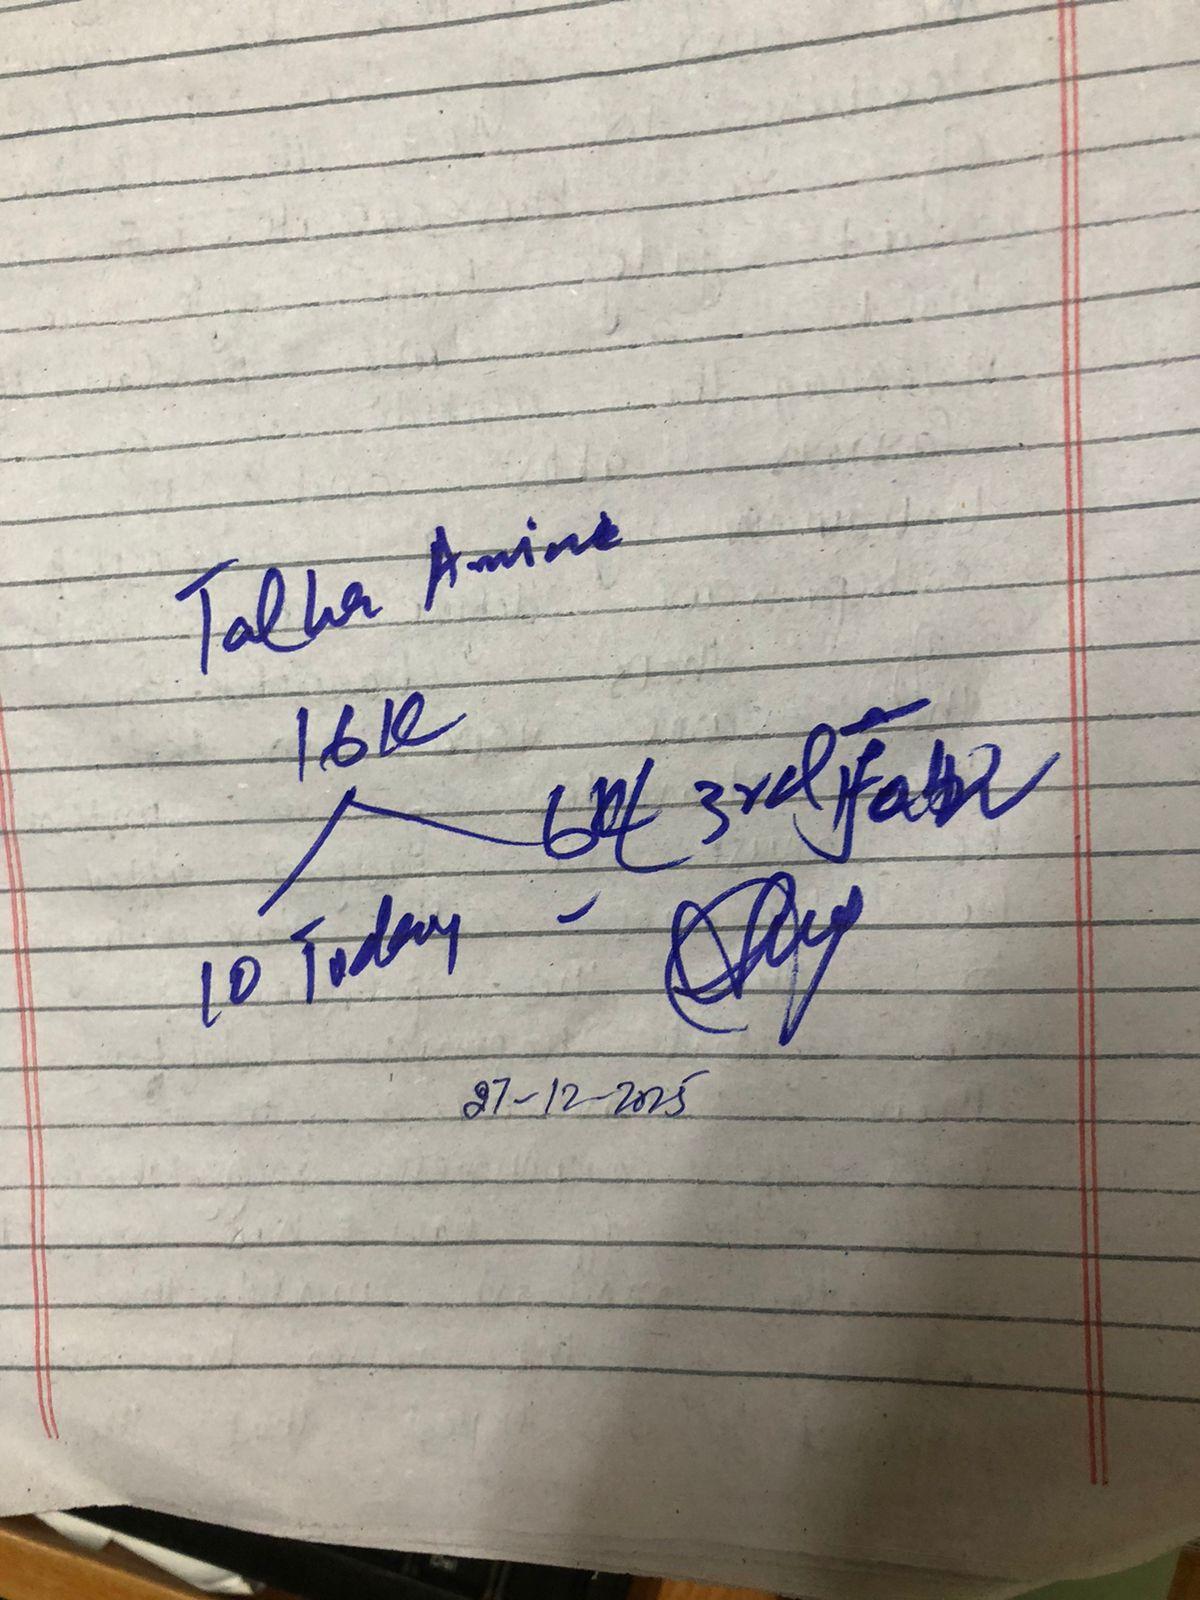 Talha Amine
16k
6k 3rd
10 Today -
27-12-2025